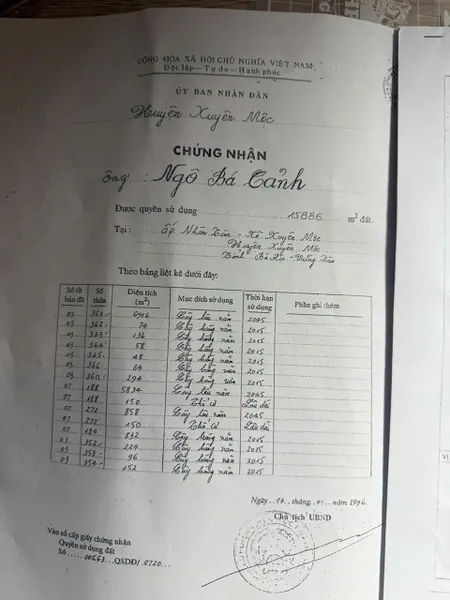 CỘNG HÒA XÃ HỘI CHỦ NGHĨA VIỆT NAM
Độc lập—Tự do—Hạnh phúc
ỦY BAN NHÂN DÂN
Huyện Xuyên Mộc
CHỨNG NHẬN
Ông : Ngô Bá Cảnh
Được quyền sử dụng 15886 m² đất
Tại : Ấp Nhân Tân - Xã Xuyên Mộc
Huyện Xuyên Mộc
Tỉnh Bà Rịa - Vũng Tàu
Theo bảng liệt kê dưới đây:
Số tờ bản đồ Số thửa Diện tích (m²) Mục đích sử dụng Thời hạn sử dụng Phần ghi thêm
03 361 Cây lâu năm 2045
03 362 74 Cây hàng năm 2015
03 363 136 Cây hàng năm 2015
03 364 58 Cây hàng năm 2015
03 365 48 Cây hàng năm 2015
03 366 64 Cây hàng năm 2015
03 360 294 Cây hàng năm 2015
07 188 5834 Cây lâu năm 2045
07 188 150 Thổ cư Lâu dài
07 272 858 Cây lâu năm 2045
07 272 150 Thổ cư Lâu dài
07 184 832 Cây hàng năm 2015
03 352 224 Cây hàng năm 2015
03 353 96 Cây hàng năm 2015
03 354 152 Cây hàng năm 2015
Ngày tháng năm 1996
Chủ tịch UBND
Vào sổ cấp giấy chứng nhận
Quyền sử dụng đất
Số 00663 QSDĐ/ 0720